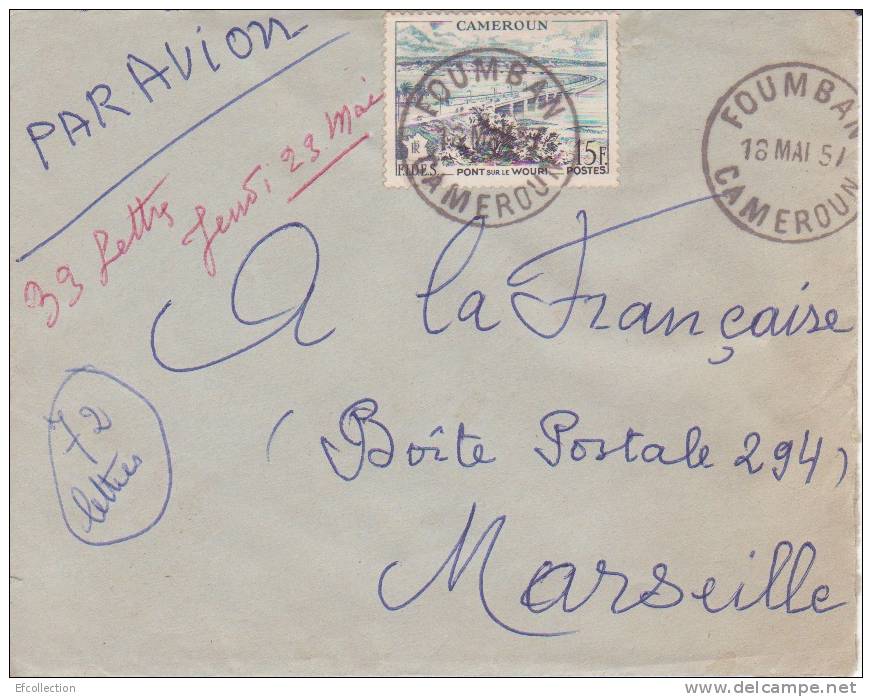 PAR AVION
CAMEROUN
RF
15F
FIDES.
PONT SUR LE WOURI
POSTES
FOUMBAN
CAMEROUN
FOUMBAN
18 MAI 57
CAMEROUN
33 lettre
Jeudi 23 Mai
A la Française
(Boîte Postale 294)
Marseille
72
lettres
Efcollection
www.delcampe.net